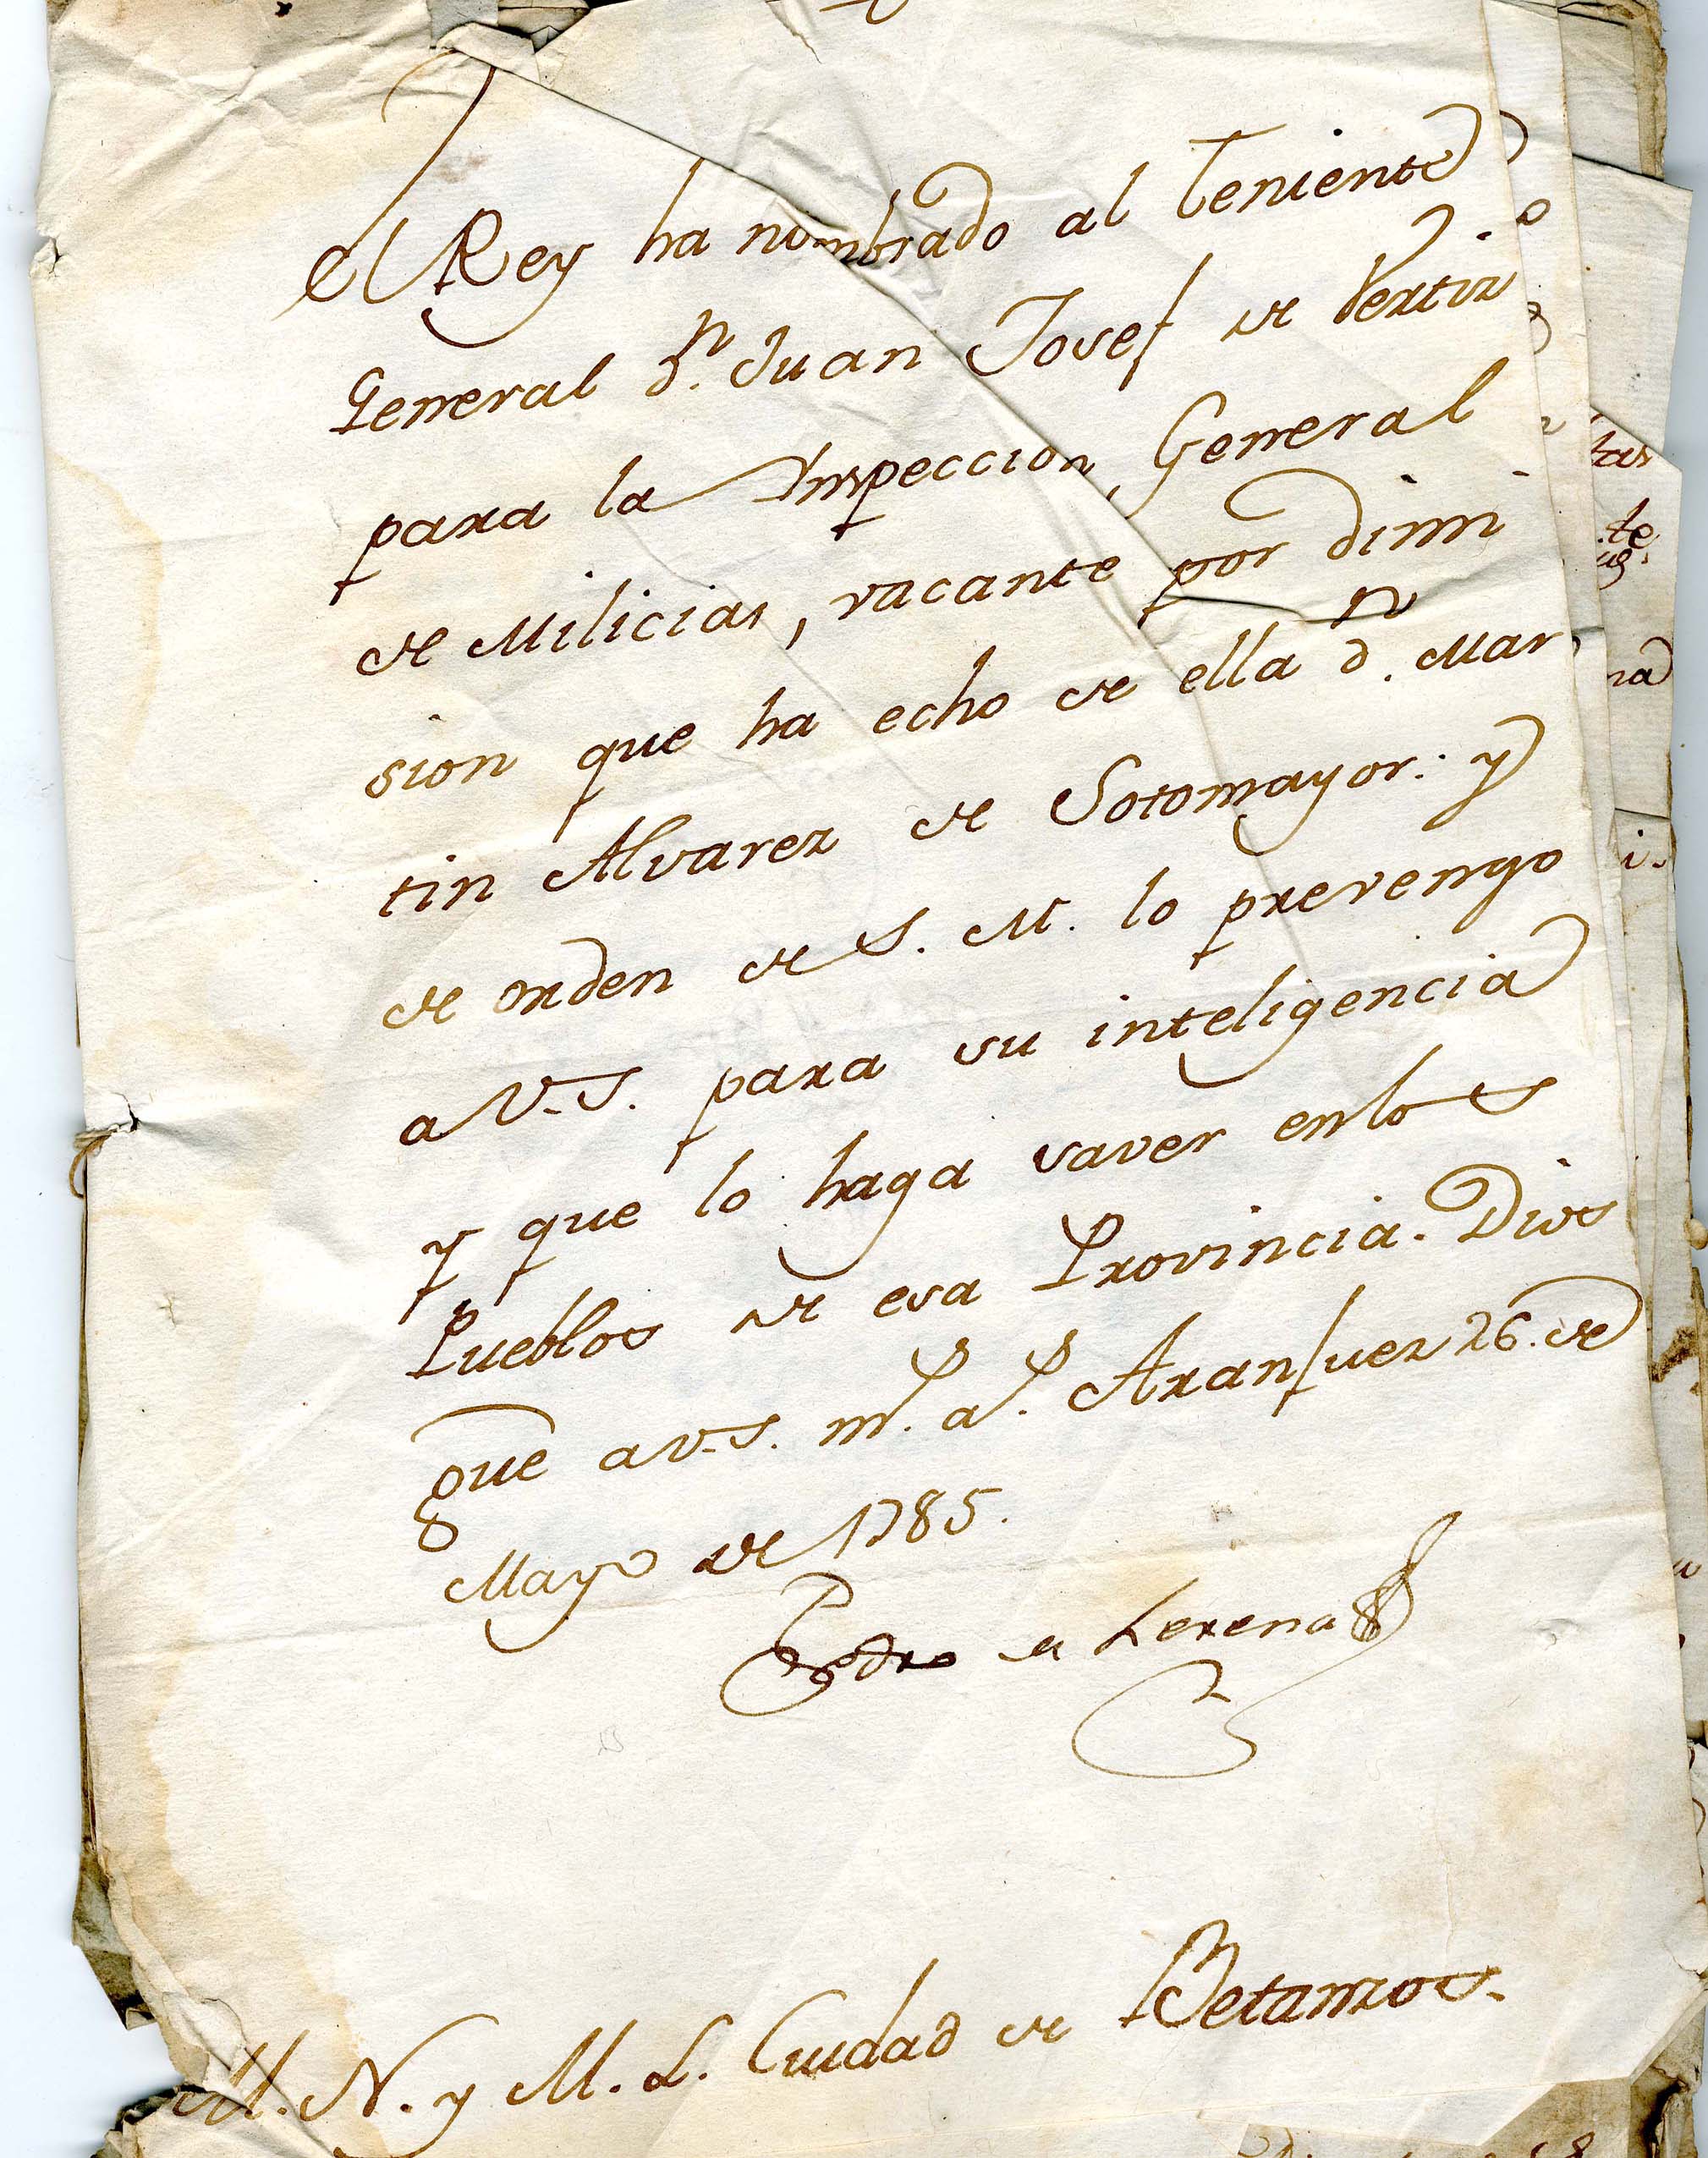 el Rey ha nombrado al Teniente
General Dn. Juan Josef de Vertiz
para la Inspeccion General
de Milicias, vacante por dimi
sion que ha echo de ella Dn. Mar
tin Alvarez de Sotomayor: y
de orden de S. M. lo prevengo
a V.S. para su inteligencia
y que lo haga saver en los
Pueblos de esa Provincia. Dios
gue a V.S. ms. as. Aranjuez 26. de
Mayo de 1785.
Pedro de Lerena
M. N. y M. L. Ciudad de Betanzos.